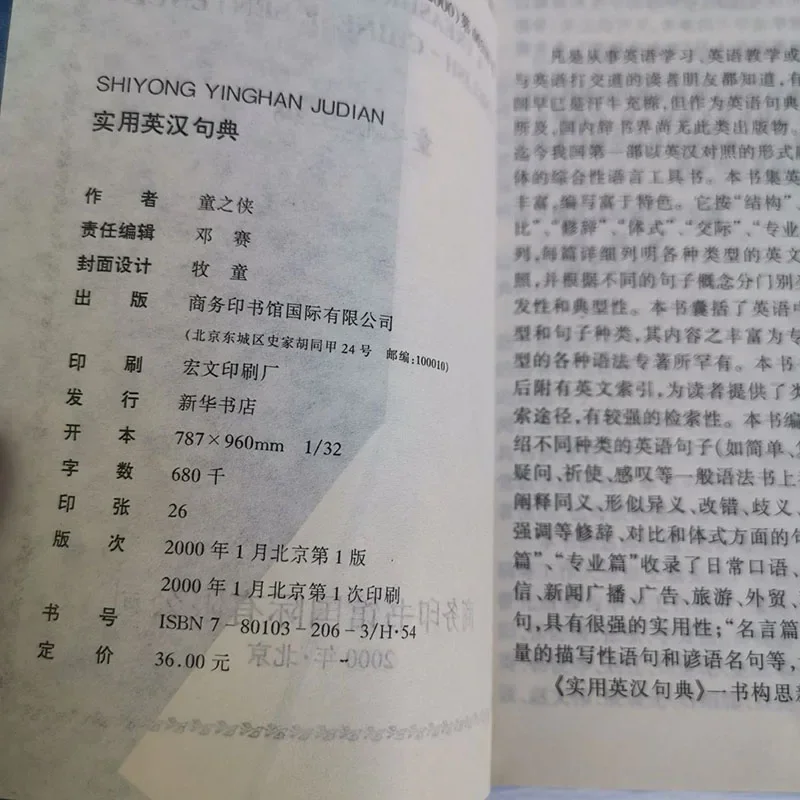 SHIYONG YINGHAN JUDIAN
实用英汉句典
作 者 童之侠
责任编辑 邓 赛
封面设计 牧 童
出 版 商务印书馆国际有限公司
(北京东城区史家胡同甲24号 邮编:100010)
印 刷 宏文印刷厂
发 行 新华书店
开 本 787×960mm 1/32
字 数 680千
印 张 26
版 次 2000年1月北京第1版
2000年1月北京第1次印刷
书 号 ISBN 7-80103-206-3/H·54
定 价 36.00元
凡是从事英语学习、英语教学或
与英语打交道的读者朋友都知道,有
国早已是汗牛充栋,但作为英语句典
所及,国内辞书界尚无此类出版物。
迄今我国第一部以英汉对照的形式
体的综合性语言工具书。本书集英
丰富,编写富于特色。它按“结构”、
比”、“修辞”、“体式”、“交际”、“专业
列,每篇详细列明各种类型的英文
照,并根据不同的句子概念分门别
发性和典型性。本书囊括了英语中
型和句子种类,其内容之丰富为专
型的各种语法专著所罕有。本书
后附有英文索引,为读者提供了类
索途径,有较强的检索性。本书编
绍不同种类的英语句子(如简单、
疑问、祈使、感叹等一般语法书上
阐释同义、形似异义、改错、歧义、
强调等修辞、对比和体式方面的句
篇”、“专业篇”收录了日常口语、
信、新闻广播、广告、旅游、外贸、
句,具有很强的实用性;“名言篇
量的描写性语句和谚语名句等,
《实用英汉句典》一书构思